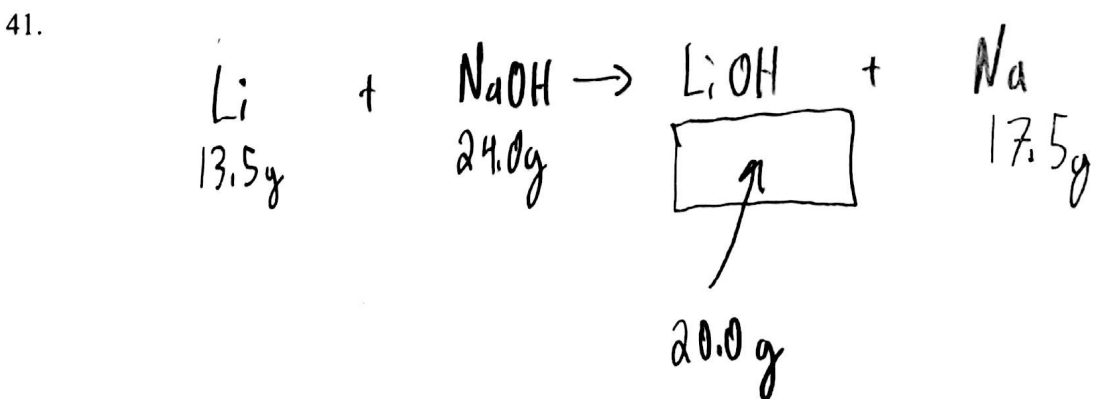 41.
Li + NaOH → LiOH + Na
13.5g 24.0g 17.5g
20.0g